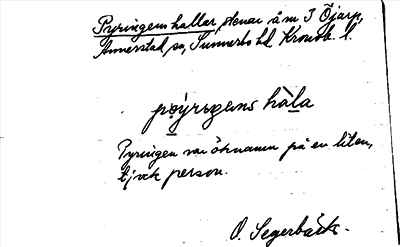 Pyringens hallar, stenar å m 3 Öjarp,
Annerstad sn, Sunnerbo hd, Kronob. l.
pö̀yriŋens hàla
Pyringen var öknamn på en liten,
tjock person.
O. Segerbäck.